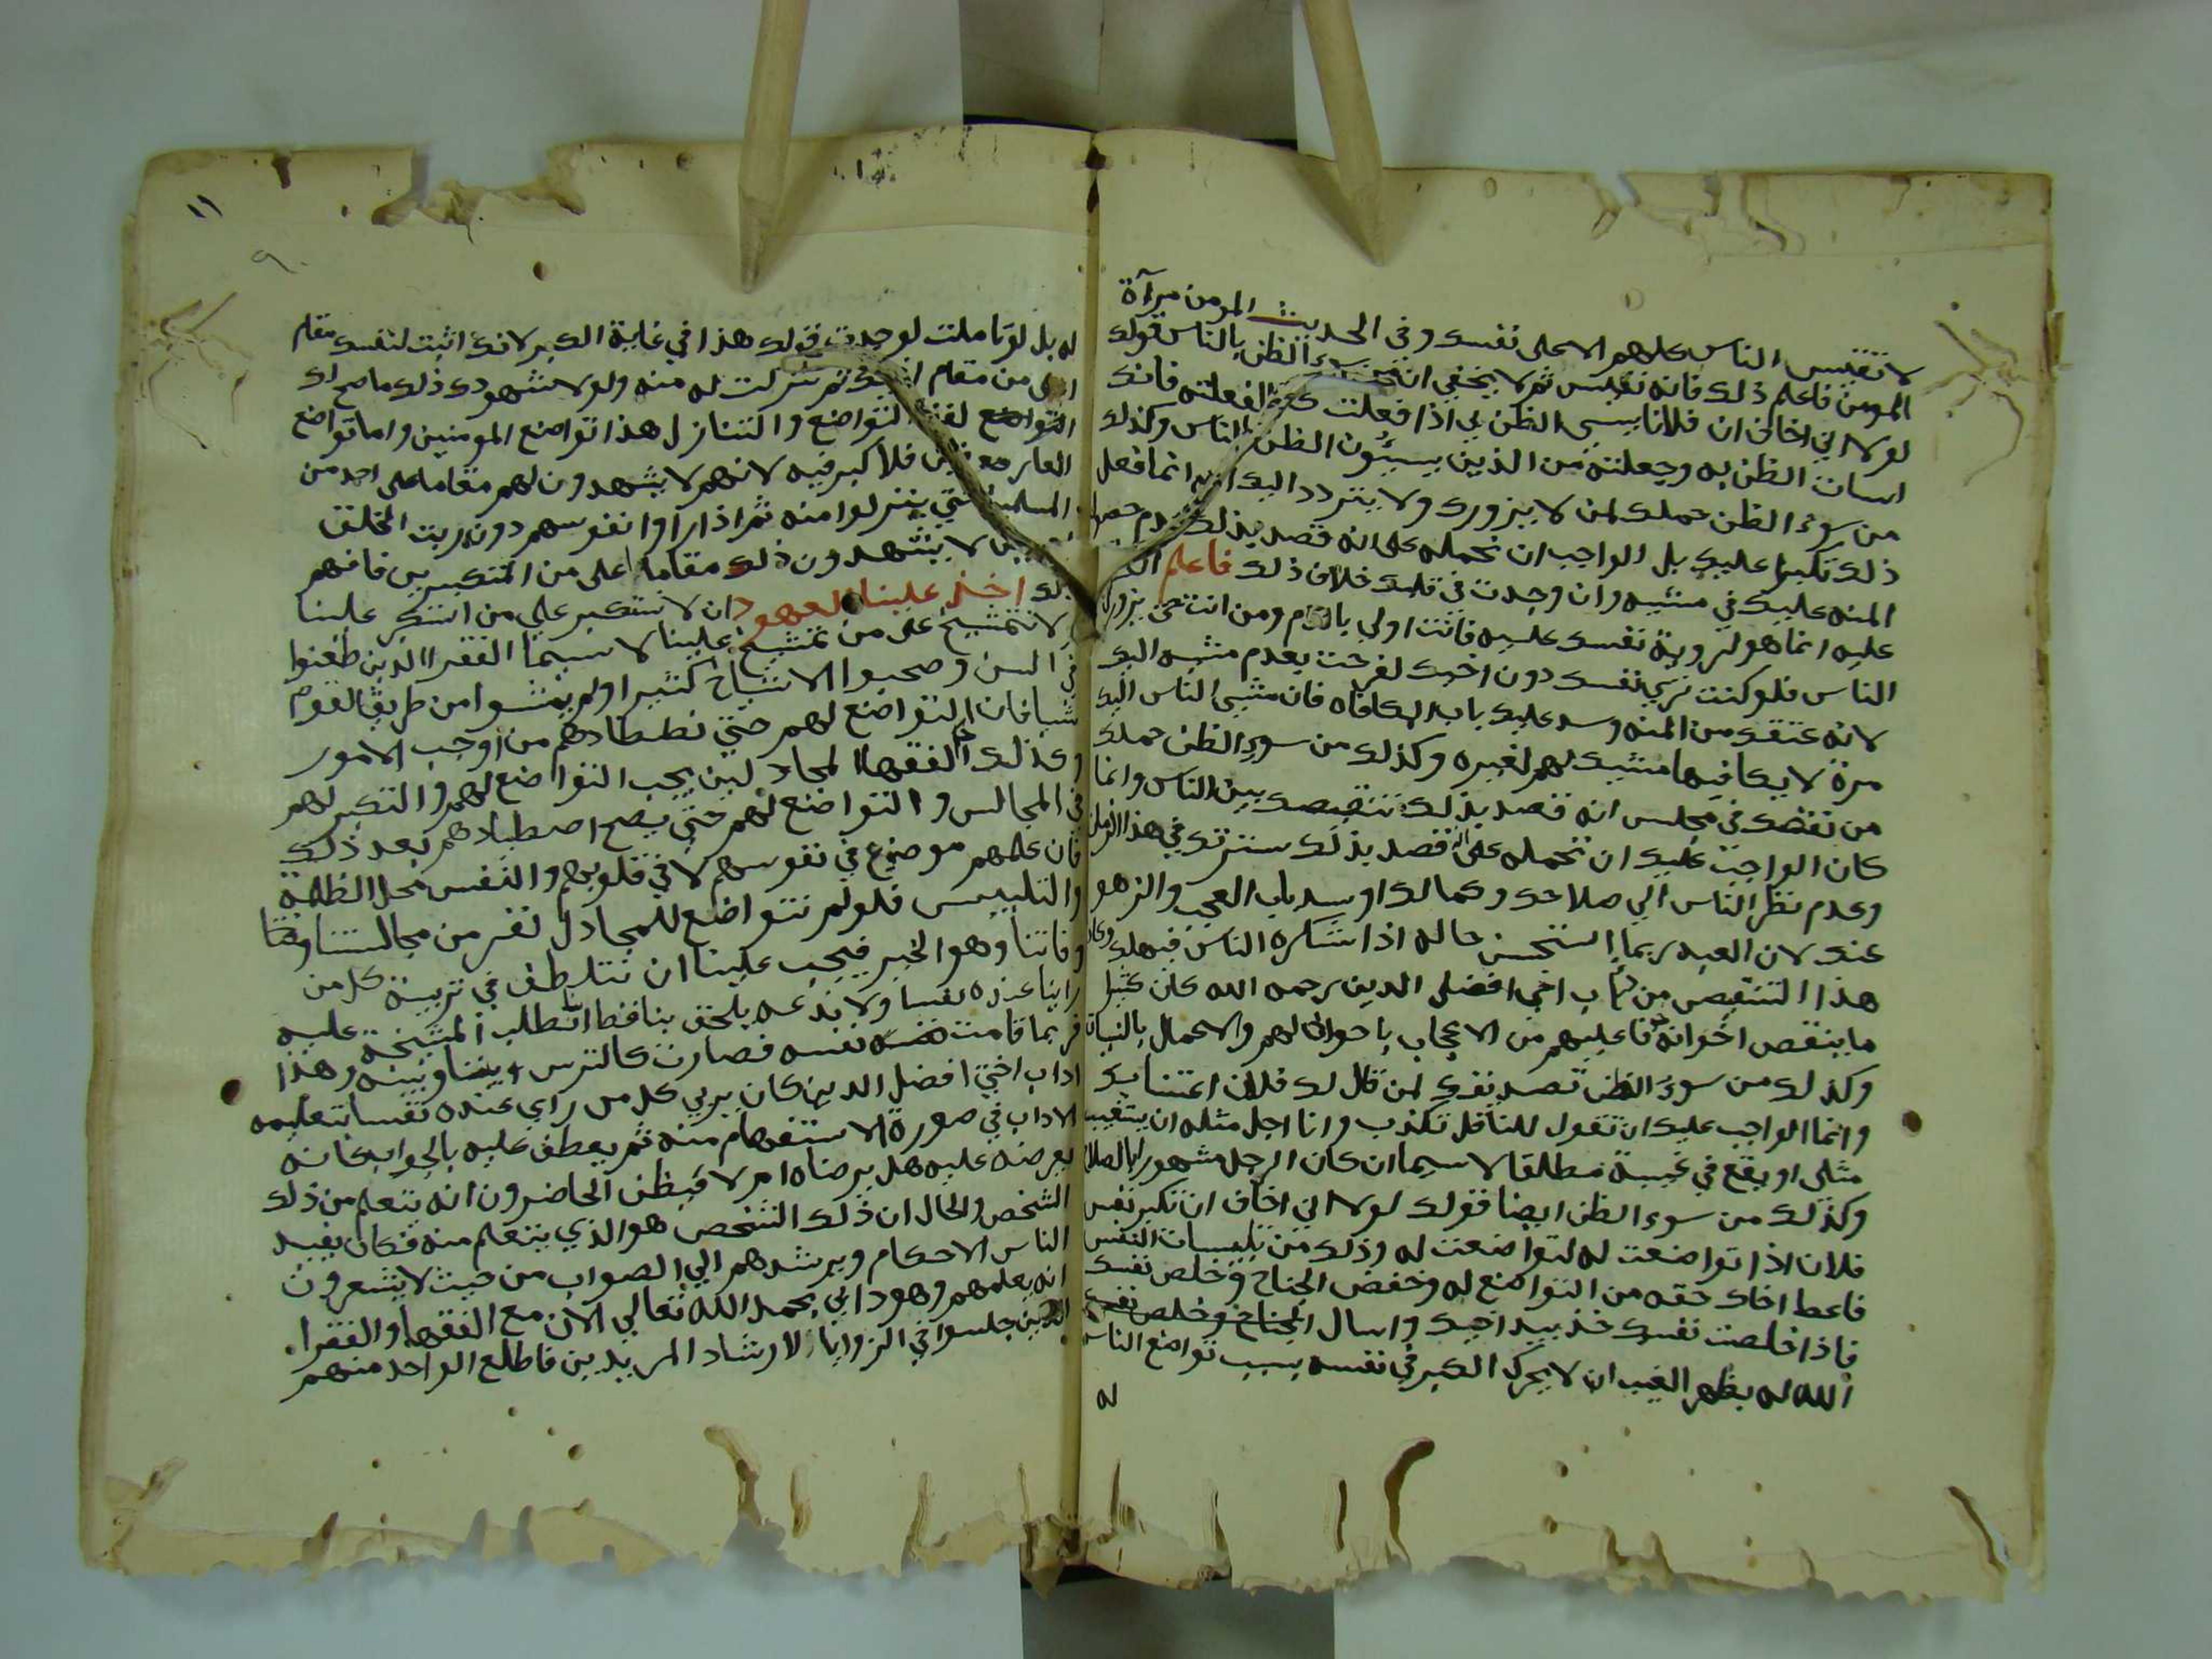 لا تقيس الناس كلهم الا على نفسك وفي الحديث المومن مرآة
المومن فاعلم ذلك فانه نفيس ثم لا يخفي ان سوء الظن بالناس قولك
لولا اني اخاف ان فلانا يسيء الظن بي اذا فعلت كذا لفعلته فانك
اسات الظن به وجعلته من الذين يسيئون الظن بالناس وكذلك
من سوء الظن حملك لمن لا يزورك ولا يتردد اليك انه انما فعل
ذلك تكبرا عليك بل الواجب ان تحمله على انه قصد بذلك عدم حصول
المنه عليك في مشيه وان وجدت في قلبك خلاف ذلك فاعلم
عليه انما هو لروية نفسك عليه فانت اولي باللوم ومن انت حتى يزورك
الناس فلو كنت تري نفسك دون اخيك لفرحت بعدم مشيه اليك
لانه عتقك من المنه وسد عليك باب المكافاه فان مشي الناس اليك
مرة لا يكافيها مشيك لهم لغيره وكذلك من سوء الظن حملك
من نقصك في مجلس انه قصد بذلك تنقيصك بين الناس وانما
كان الواجب عليك ان تحمله على انه قصد بذلك سترتك في هذا الزمان
وعدم نظر الناس الي صلاحك وكمالك او سد باب العجب والزهو
عنك لان العبد ربما استحسن حاله اذا شكره الناس فيهلك وكان
هذا التنقيص من اداب اخي افضل الدين رحمه الله كان كثيرا
ما ينقص اخوانه خوفا عليهم من الاعجاب باحوالهم والاعمال بالنيات
وكذلك من سوء الظن تصديقك لمن قال لك فلان اغتابك
وانما الواجب عليك ان تقول للناقل تكذب وانا اجل مثله ان يستغيب
مثلي او يقع في غيبة مطلقا لا سيما ان كان الرجل مشهورا بالصلاح
وكذلك من سوء الظن ايضا قولك لولا اني اخاف ان تكبر نفس
فلان اذا تواضعت له لتواضعت له وذلك من تلبيسات النفس
فاعط اخاك حقه من التواضع له وخفض الجناح وخلص نفسك
فاذا خلصت نفسك خذ بيد اخيك واسال الجناح وخلص نفسك
الله له بظهر الغيب ان لا يحرك الكبر في نفسه بسبب تواضع الناس
له
١١
٩
له بل لو تاملت لوجدت قولك هذا في غاية الكبر لانك اثبت لنفسك مقام
اعلى من مقام اخيك ثم تنزلت له منه ولولا شهودك ذلك ما صح لك
التواضع لفظ التواضع والتنازل هذا تواضع المومنين واما تواضع
العارفين فلا كبر فيه لانهم لا يشهدون لهم مقاما على احد من
المسلمين حتي ينزلوا منه ثم اذا راوا نفوسهم دون رب الخلق
لا يشهدون ذلك مقاما اعلى من المتكبرين فافهم
ذلك اخذ علينا العهود ان لا نتكبر على من استكبر علينا
ولا نتمشيخ على من تمشيخ علينا لا سيما الفقرا الذين طعنوا
في السن وصحبوا الاشياخ كثيرا ولم يمشوا من طريق القوم
شيا فان التواضع لهم حتي نصطادهم من اوجب الامور
وكذلك الفقها المجادلين يجب التواضع لهم والتكبير لهم
في المجالس والتواضع لهم حتي يصح اصطيادهم بعد ذلك
فان علمهم موضوع في نفوسهم لا في قلوبهم والنفس محل الظلمة
والتلبيس فلو لم نتواضع للمجادل لنفر من مجالستنا وفتنا
وفاتنا وهو الخير فيجب علينا ان نتلطف في تربية كل من
راينا عنده نفسا ولا ندعه يلحق بنا قط انا نطلب المشيخة عليه
فربما قامت نفسه نفسه فصارت كالترس بيننا وبينه وهذا
اداب اخي افضل الدين كان يربي كل من راي عنده نفسا بتعليمه
الاداب في صورة الاستفهام منه ثم يعطف عليه بالجواب كانه
يعرضه عليه هل يرضاه ام لا فيظن الحاضرون انه يتعلم من ذلك
الشخص والحال ان ذلك الشخص هو الذي يتعلم منه فكان يفيد
الناس الاحكام ويرشدهم الي الصواب من حيث لا يشعرون
انه يعلمهم وهو دابي بحمد الله تعالي الان مع الفقها والفقرا
الذين جلسوا في الزوايا لارشاد المريدين فاطلع الواحد منهم